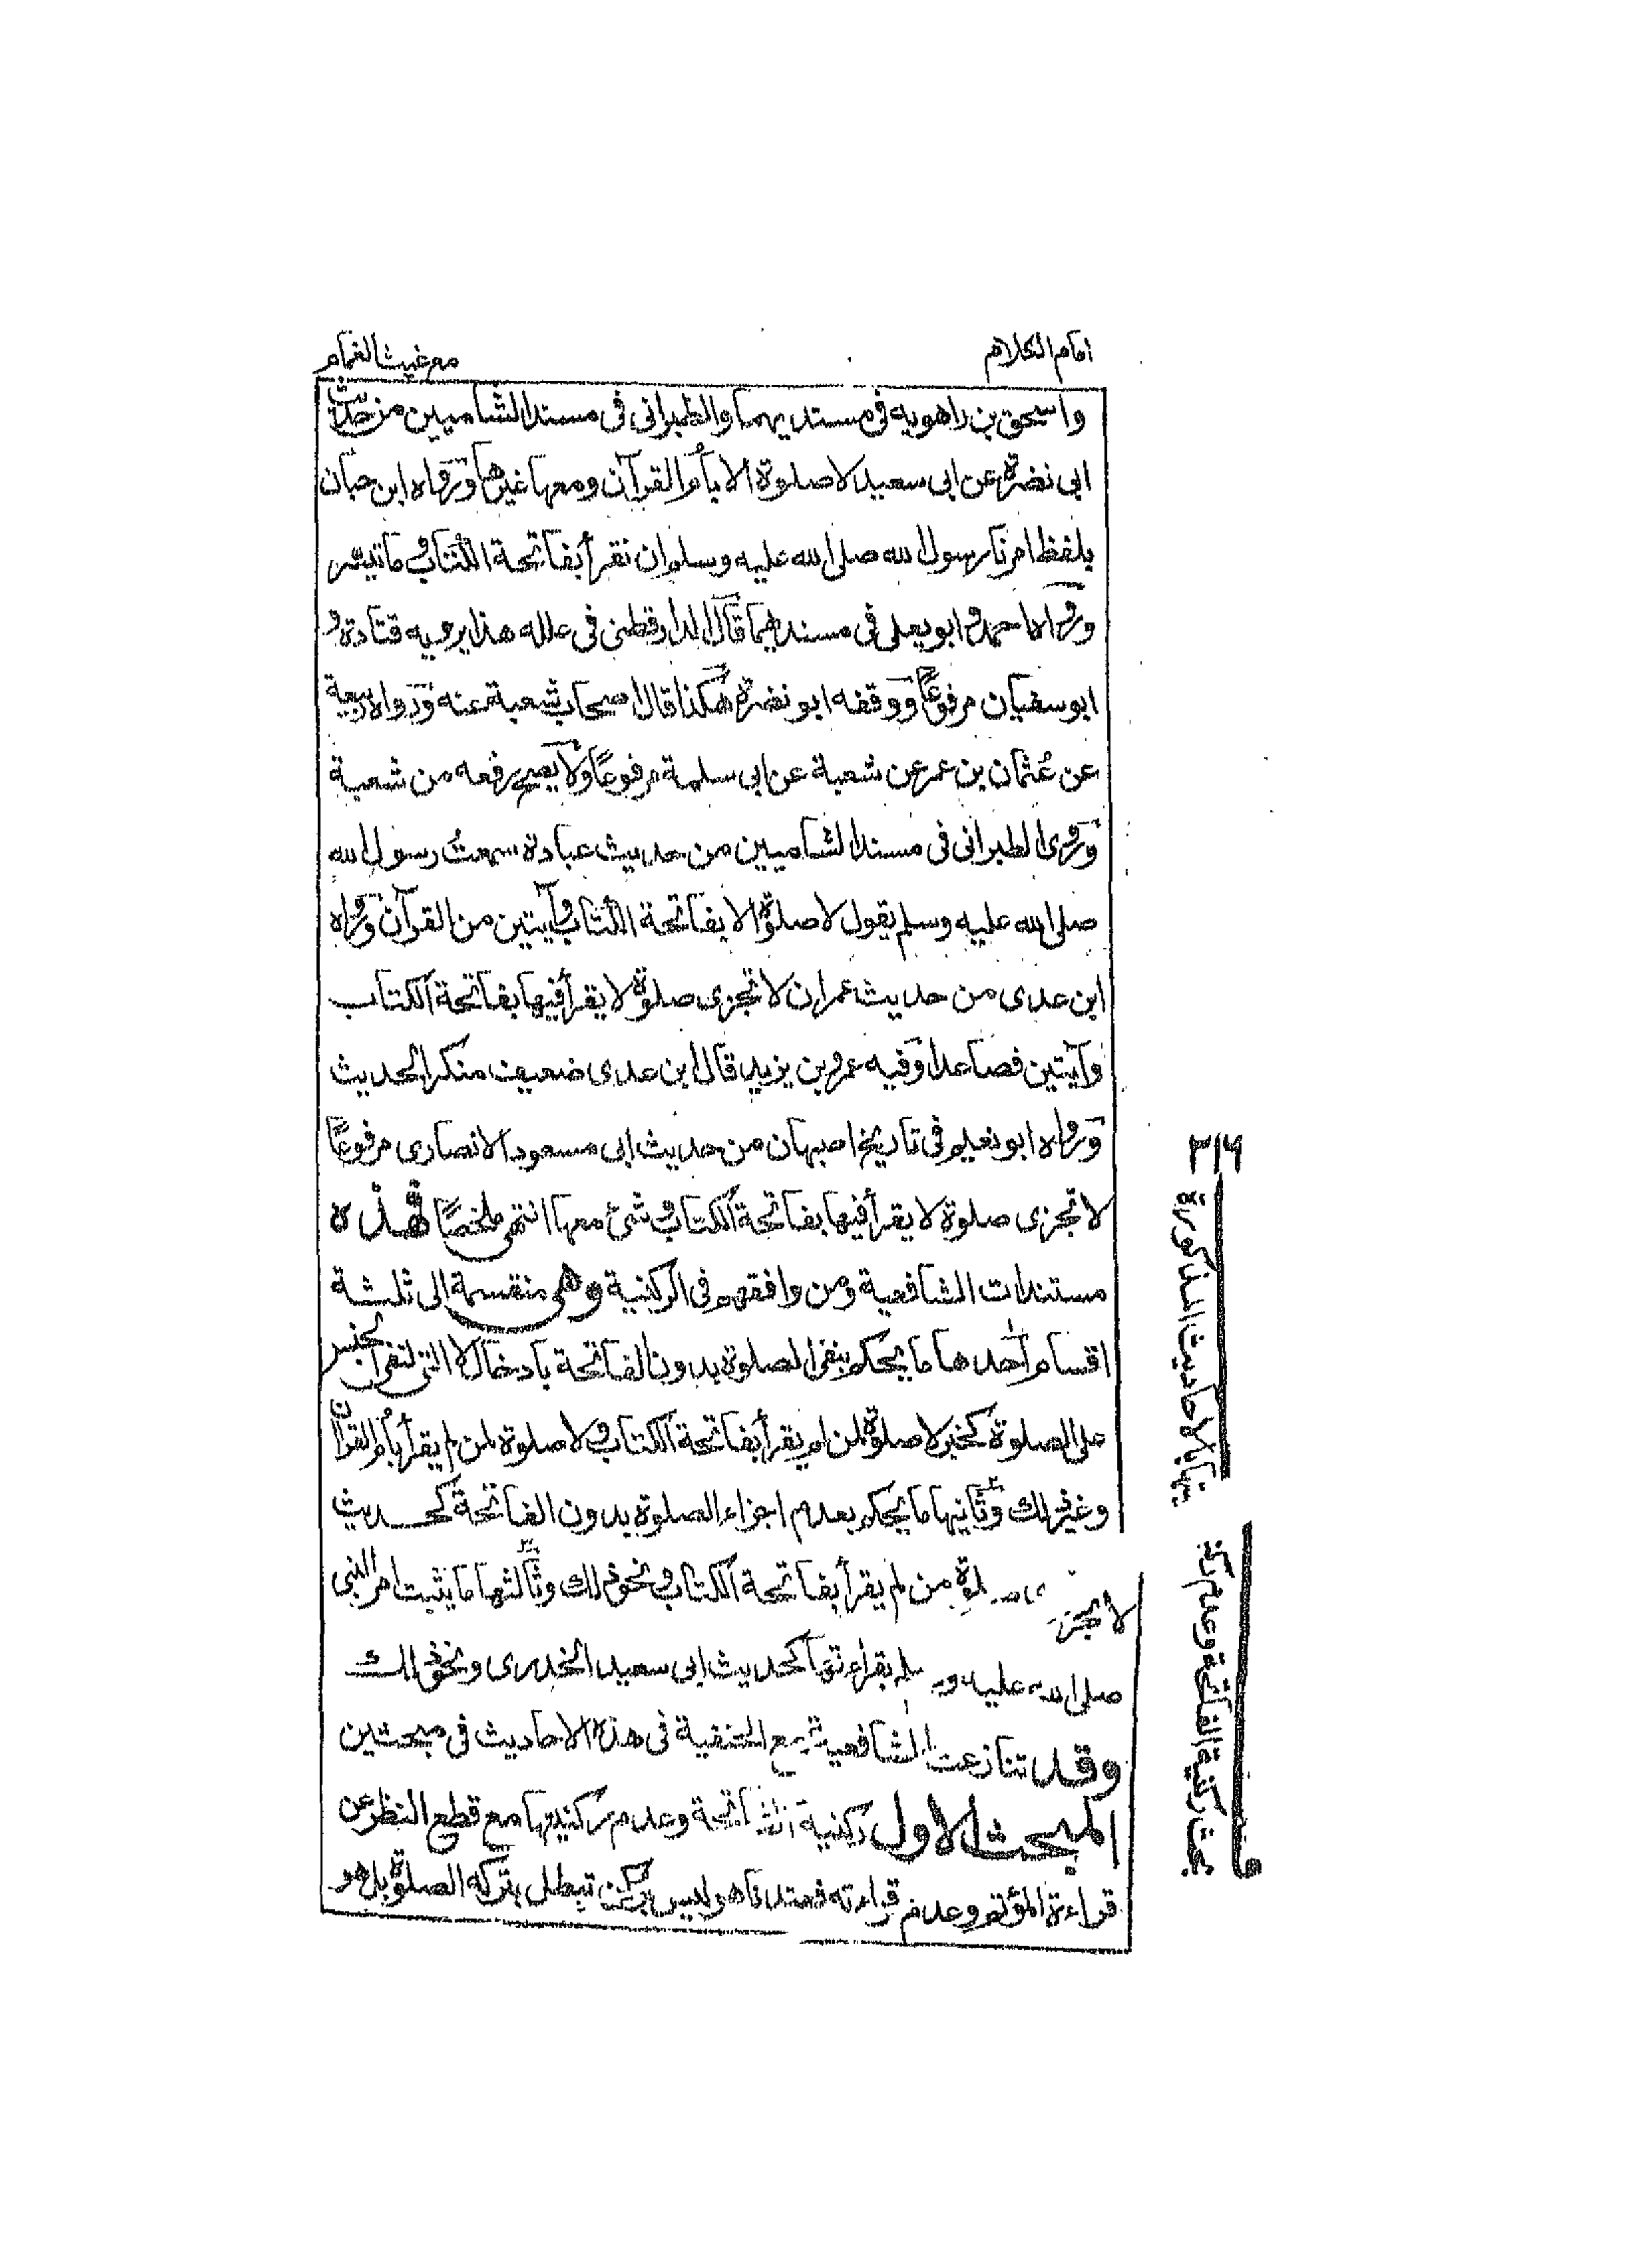 امام الكلام
مع غيث الغمام
واسحق بن راهويه فى مسنديهما والطبرانى فى مسند الشاميين من حديث
ابى نضرة عن ابى سعيد لا صلوة الا بأم القرآن ومعها غيرها ورواه ابن حبان
بلفظ امرنا رسول الله صلى الله عليه وسلم ان نقرأ بفاتحة الكتاب وما تيسر
ورواه احمد وابو يعلى فى مسنديهما قال الدارقطنى فى علله هذا يرويه قتادة و
ابو سفيان مرفوعًا ووقفه ابو نضرة هكذا قال اصحاب شعبة عنه ورواه ربيعة
عن عُثمان بن عمر عن شعبة عن ابى سلمة مرفوعًا ولا يصح رفعه من شعبة
وروى الطبرانى فى مسند الشاميين من حديث عبادة سمعتُ رسول الله
صلى الله عليه وسلم يقول لا صلوة الا بفاتحة الكتاب وآيتين من القرآن ورواه
ابن عدى من حديث عمران لا تجزى صلوة لا يقرأ فيها بفاتحة الكتاب
وآيتين فصاعدا وفيه عمرو بن يزيد قال ابن عدى ضعيف منكر الحديث
ورواه ابو نعيم فى تاريخ اصبهان من حديث ابى مسعود الانصارى مرفوعًا
لا تجزى صلوة لا يقرأ فيها بفاتحة الكتاب وشئ معها انتهى ملخصًا فهذه
مستندات الشافعية ومن وافقهم فى الركنية وهى منقسمة الى ثلثة
اقسام احدها ما يحكم بنفى الصلوة بدون الفاتحة بادخال لا التى لنفى الجنس
على الصلوة كخبر لا صلوة لمن لم يقرأ بفاتحة الكتاب ولا صلوة لمن لم يقرأ بأم القرآن
وغير ذلك وثانيها ما يحكم بعدم اجزاء الصلوة بدون الفاتحة كحديث
لا تجزى صلوة من لم يقرأ بفاتحة الكتاب ونحو ذلك وثالثها ما يثبت امر النبى
صلى الله عليه وسلم بقراءتها كحديث ابى سعيد الخدرى ونحو ذلك
وقد تنازعت الشافعية مع الحنفية فى هذه الاحاديث فى مبحثين
المبحث الاول ركنية الفاتحة وعدم ركنيتها مع قطع النظر عن
قراءة المؤتم وعدم قراءته فعندنا هو ليس بركن تبطل بتركه الصلوة بل هو
٢١٦
بحث ركنية الفاتحة وعدم ركنيتها بالاحاديث المذكورة